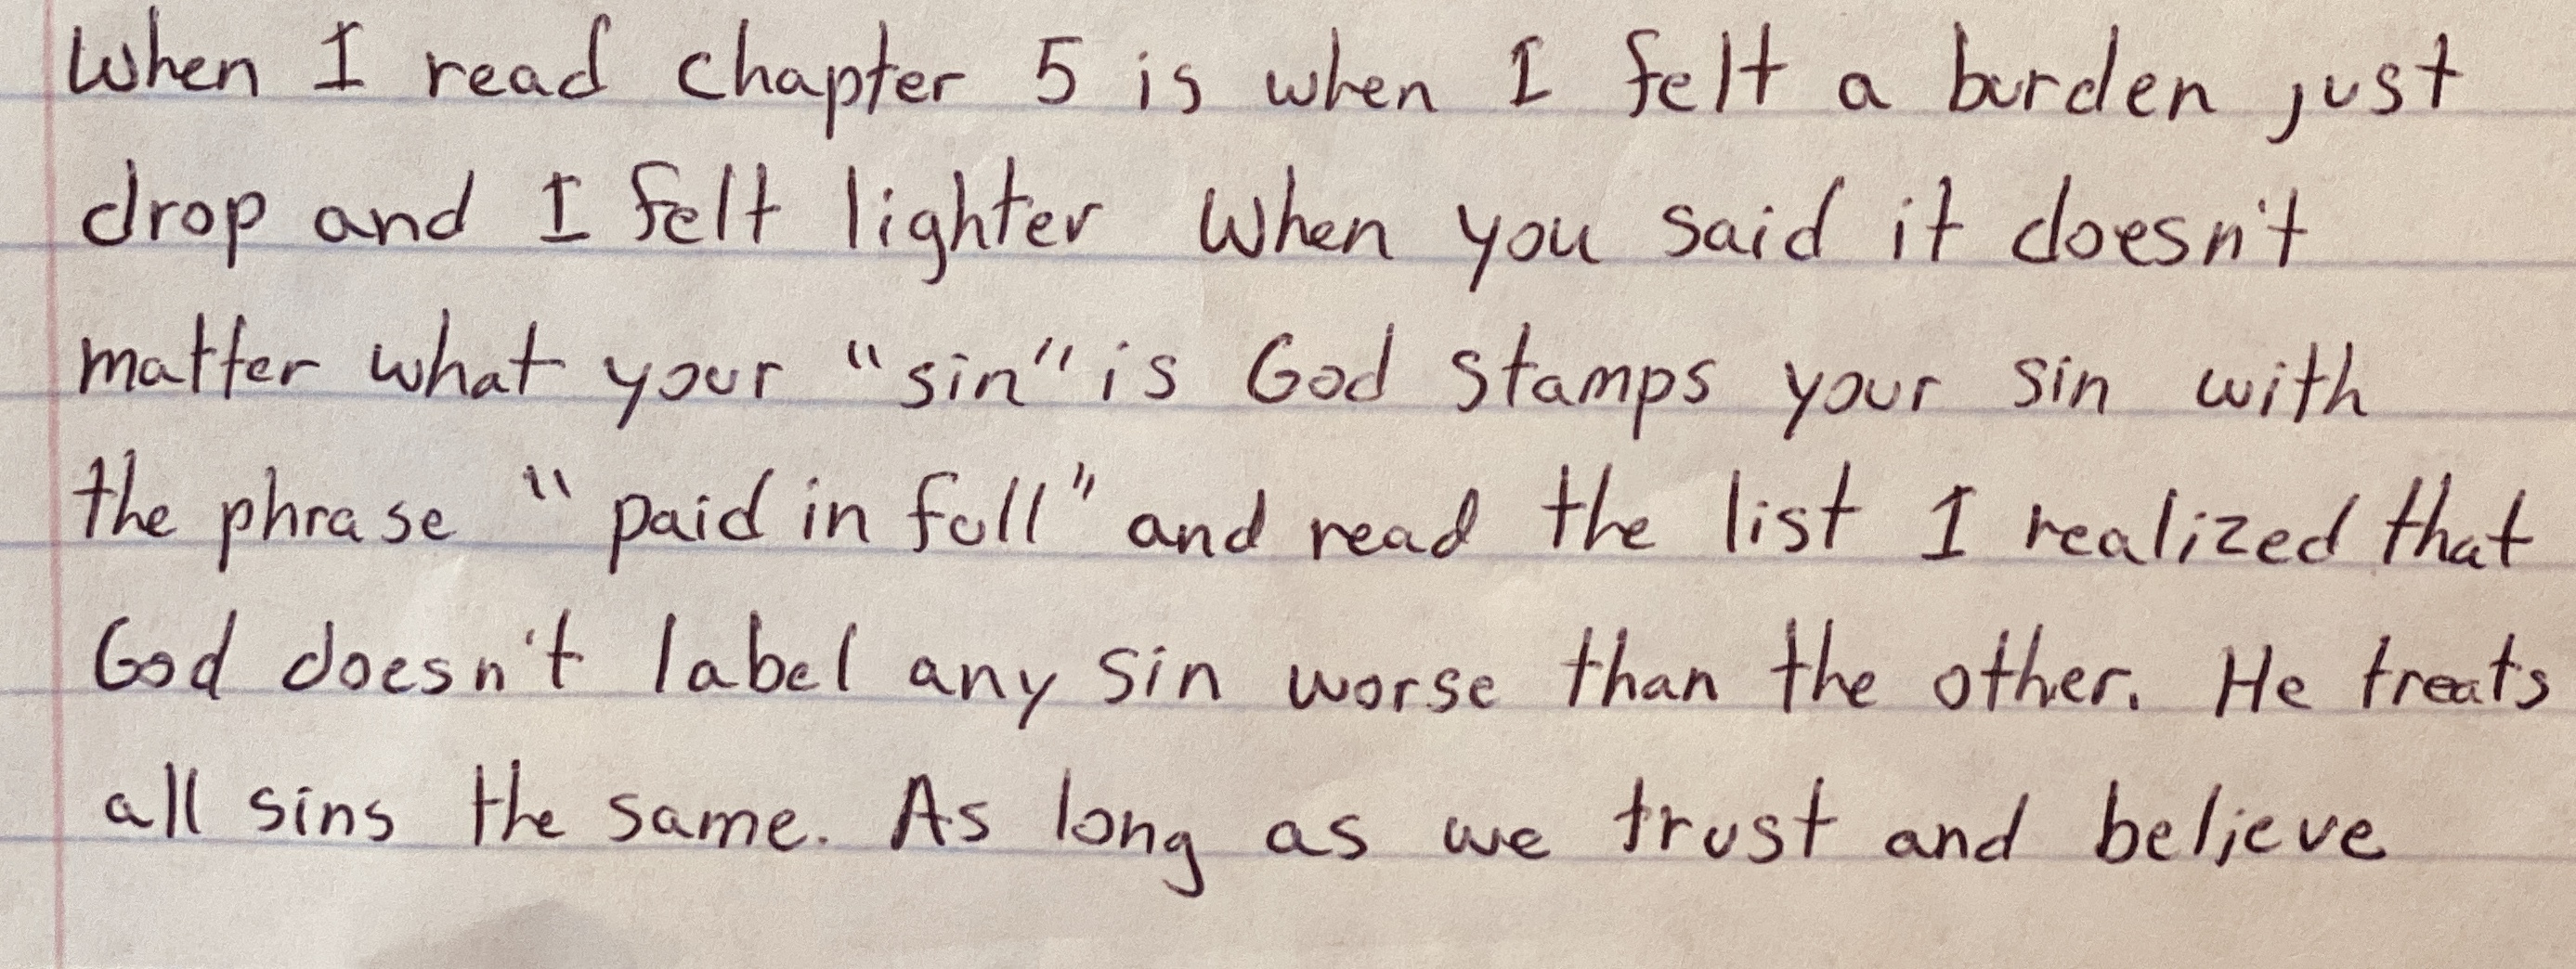 When I read chapter 5 is when I felt a burden just
drop and I felt lighter When you said it doesn't
matter what your "sin" is God stamps your sin with
the phrase "paid in full" and read the list I realized that
God doesn't label any sin worse than the other. He treats
all sins the same. As long as we trust and believe